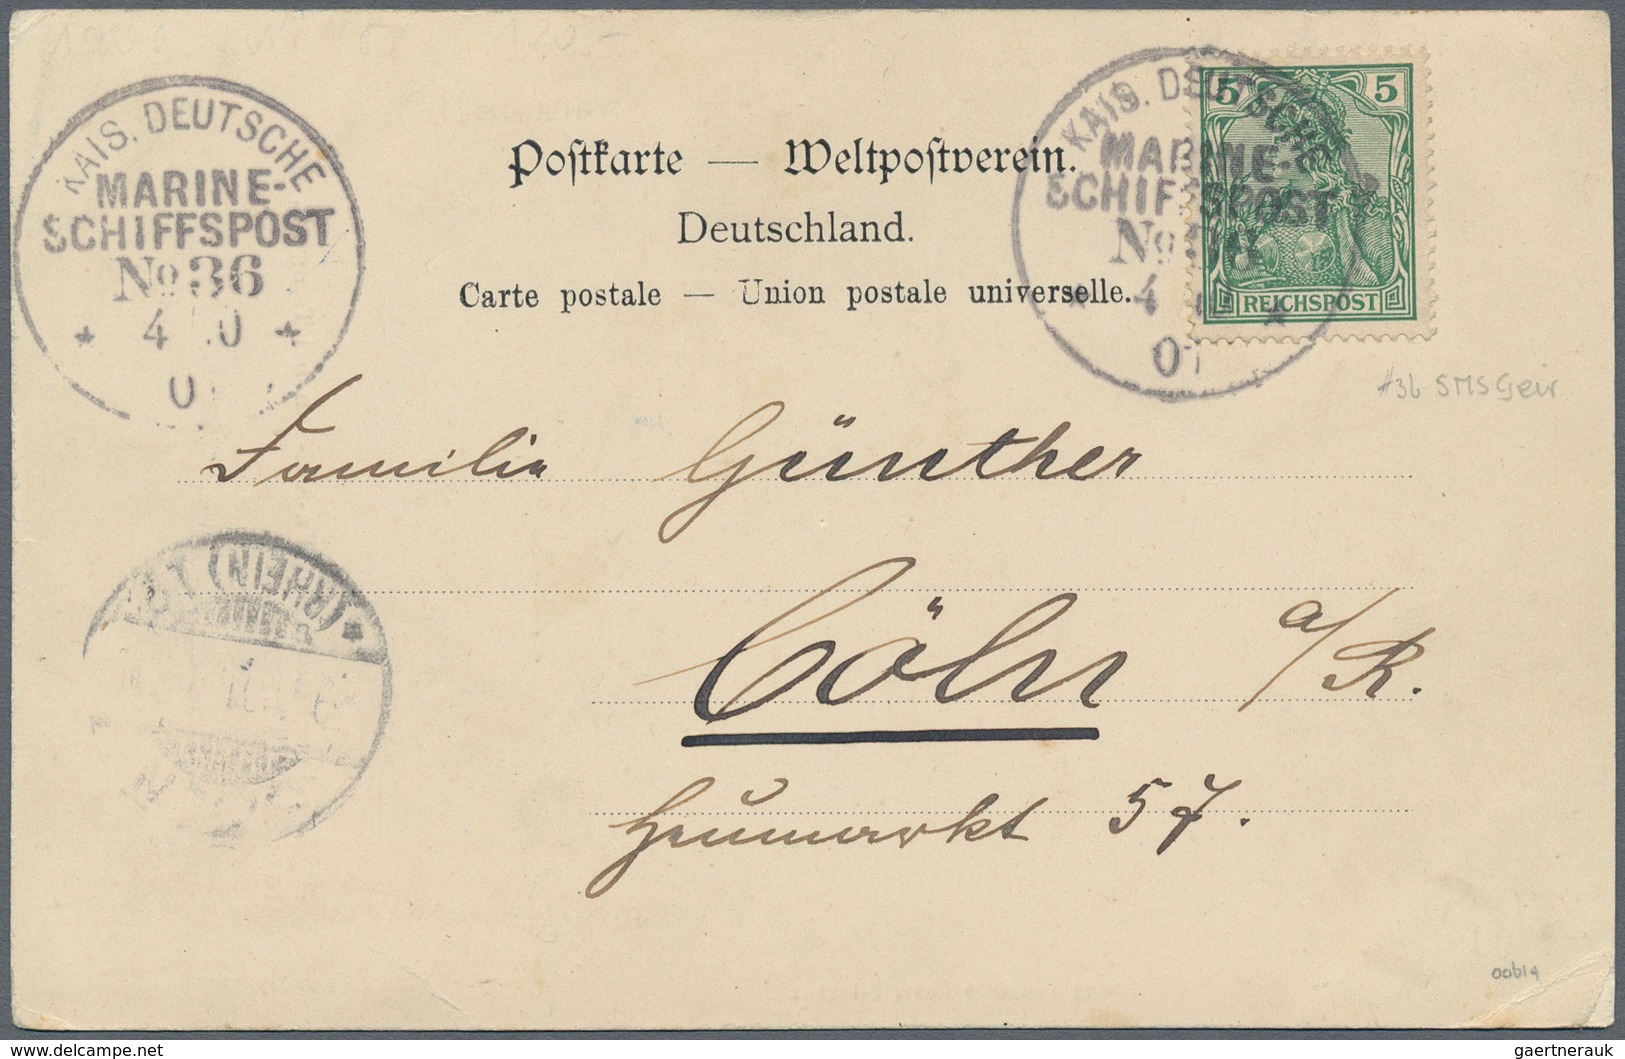 KAIS. DEUTSCHE
MARINE-
SCHIFFSPOST
No 36
* 4 10 *
0
KAIS. DEUTSCHE
MARINE-
SCHIFFSPOST
No
* 4 *
01
5 5
REICHSPOST
Postkarte — Weltpostverein.
Deutschland.
Carte postale — Union postale universelle.
#36 SMS Geir
Familie Günther
Cöln a/R.
Heumarkt 57.
(RHEIN)
oobl4
www.delcampe.net
gaertnerauk